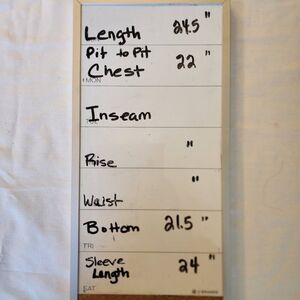 Length 24.5"
Pit to Pit
Chest 22"
MON
Inseam
Rise "
Waist "
Bottom 21.5"
FRI
Sleeve
Length 24"
SAT